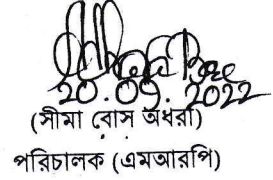 20.09.2022
(সীমা বোস অধরা)
পরিচালক (এমআরপি)